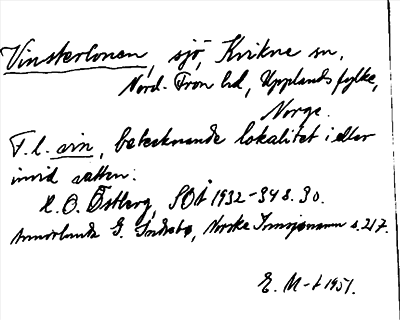 Vinsterlonen, sjö, Kvikne sn,
Nord-Fron hd, Upplands fylke,
Norge.
T. l. vin, betecknande lokalitet i eller
invid vatten.
K. O. Östberg, SOÅ 1932-34 s. 30.
Annorlunda G. Indrebø, Norske Innsjønavn s. 217.
E. M-t 1951.